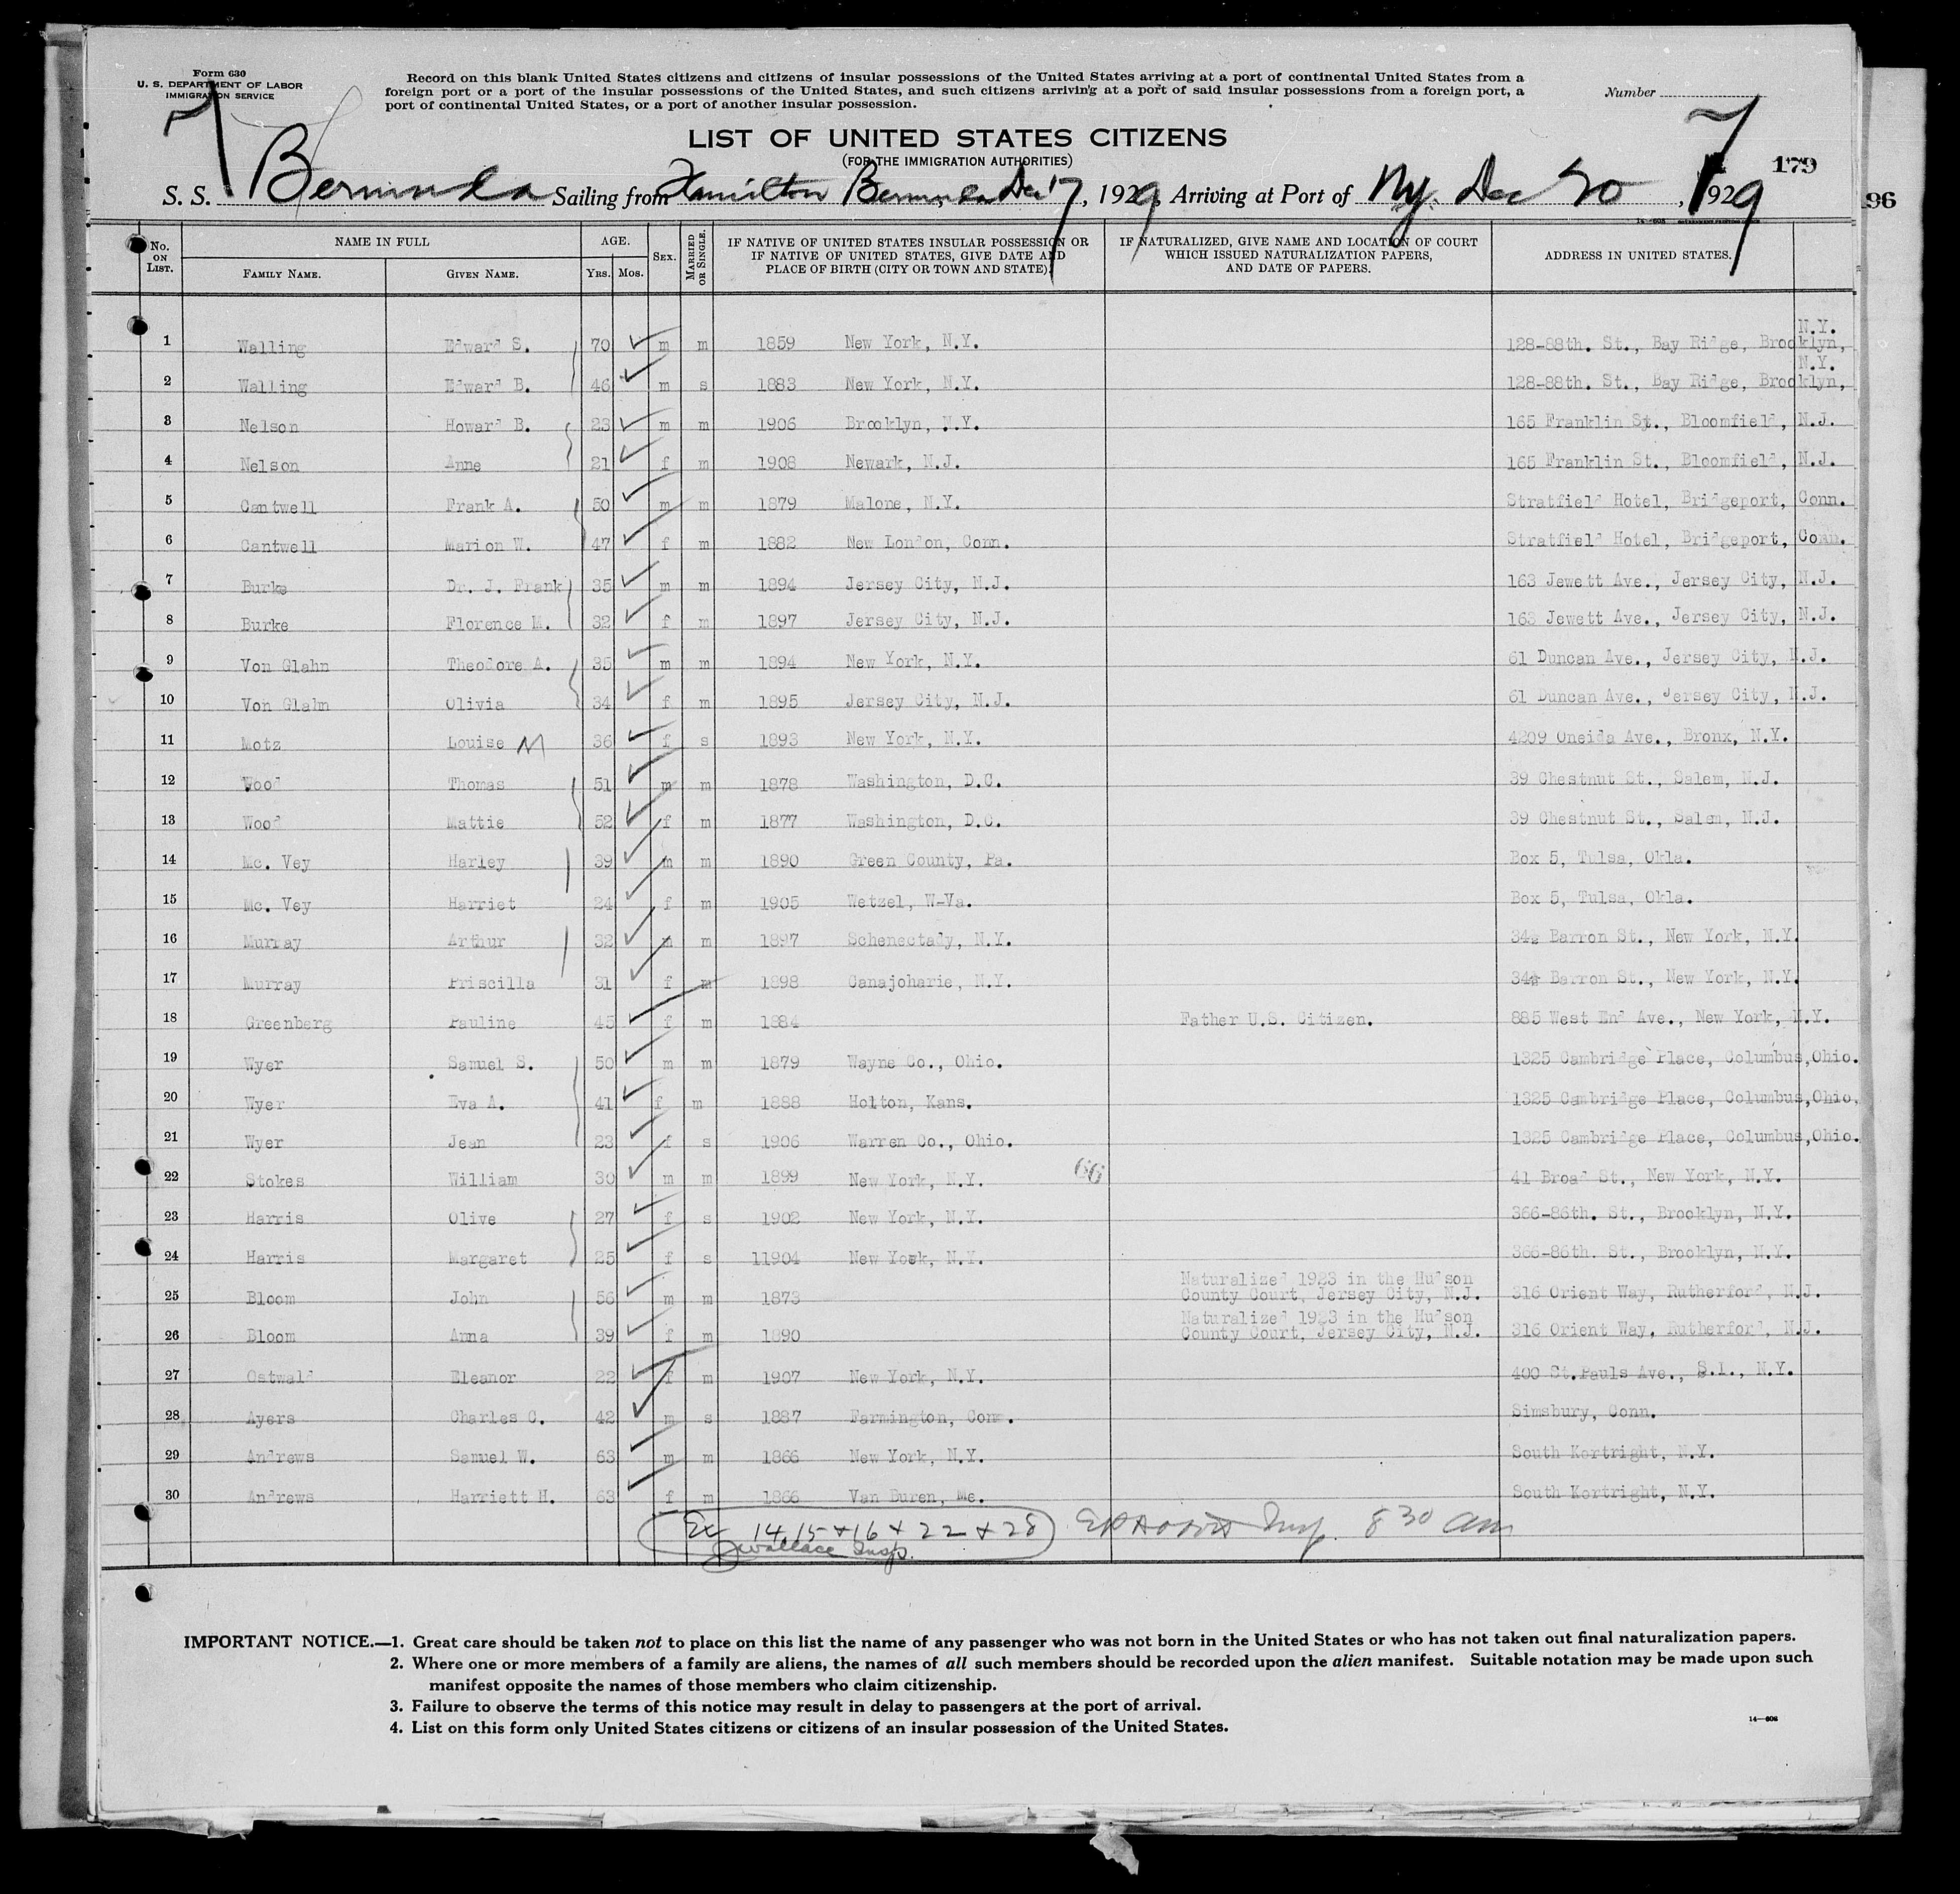 Form 630
U. S. DEPARTMENT OF LABOR
IMMIGRATION SERVICE
Record on this blank United States citizens and citizens of insular possessions of the United States arriving at a port of continental United States from a
foreign port or a port of the insular possessions of the United States, and such citizens arriving at a port of said insular possessions from a foreign port, a
port of continental United States, or a port of another insular possession.
Number
7
7
LIST OF UNITED STATES CITIZENS
(FOR THE IMMIGRATION AUTHORITIES)
179
96
S. S. Bermuda Sailing from Hamilton Bermuda Dec 17, 1929, Arriving at Port of Ny. Dec 20, 1929
No. ON LIST. NAME IN FULL FAMILY NAME. GIVEN NAME. AGE. Yrs. Mos. SEX. MARRIED OR SINGLE. IF NATIVE OF UNITED STATES INSULAR POSSESSION OR IF NATIVE OF UNITED STATES, GIVE DATE AND PLACE OF BIRTH (CITY OR TOWN AND STATE). IF NATURALIZED, GIVE NAME AND LOCATION OF COURT WHICH ISSUED NATURALIZATION PAPERS, AND DATE OF PAPERS. ADDRESS IN UNITED STATES.
1 Walling Edward S. 70 m m 1859 New York, N.Y. 128-88th. St., Bay Ridge, Brooklyn, N.Y.
2 Walling Edward B. 46 m s 1883 New York, N.Y. 128-88th. St., Bay Ridge, Brooklyn, N.Y.
3 Nelson Howard B. 23 m m 1906 Brooklyn, N.Y. 165 Franklin St., Bloomfield, N.J.
4 Nelson Anne 21 f m 1908 Newark, N.J. 165 Franklin St., Bloomfield, N.J.
5 Cantwell Frank A. 50 m m 1879 Malone, N.Y. Stratfield Hotel, Bridgeport, Conn.
6 Cantwell Marion W. 47 f m 1882 New London, Conn. Stratfield Hotel, Bridgeport, Conn.
7 Burke Dr. J. Frank 35 m m 1894 Jersey City, N.J. 163 Jewett Ave., Jersey City, N.J.
8 Burke Florence M. 32 f m 1897 Jersey City, N.J. 163 Jewett Ave., Jersey City, N.J.
9 Von Glahn Theodore A. 35 m m 1894 New York, N.Y. 61 Duncan Ave., Jersey City, N.J.
10 Von Glahn Olivia 34 f m 1895 Jersey City, N.J. 61 Duncan Ave., Jersey City, N.J.
11 Motz Louise M 36 f s 1893 New York, N.Y. 4209 Oneida Ave., Bronx, N.Y.
12 Wood Thomas 51 m m 1878 Washington, D.C. 39 Chestnut St., Salem, N.J.
13 Wood Mattie 52 f m 1877 Washington, D.C. 39 Chestnut St., Salem, N.J.
14 Mc. Vey Harley 39 m m 1890 Green County, Pa. Box 5, Tulsa, Okla.
15 Mc. Vey Harriet 24 f m 1905 Wetzel, W-Va. Box 5, Tulsa, Okla.
16 Murray Arthur 32 m m 1897 Schenectady, N.Y. Barron St., New York, N.Y.
17 Murray Priscilla 31 f m 1898 Canajoharie, N.Y. Barron St., New York, N.Y.
18 Greenberg Pauline 45 f m 1884 Father U.S. Citizen. 885 West End Ave., New York, N.Y.
19 Wyer Samuel S. 50 m m 1879 Wayne Co., Ohio. 1325 Cambridge Place, Columbus, Ohio.
20 Wyer Eva A. 41 f m 1888 Holton, Kans. 1325 Cambridge Place, Columbus, Ohio.
21 Wyer Jean 23 f s 1906 Warren Co., Ohio. 1325 Cambridge Place, Columbus, Ohio.
22 Stokes William 30 m m 1899 New York, N.Y. 41 Broad St., New York, N.Y.
23 Harris Olive 27 f s 1902 New York, N.Y. 366-86th. St., Brooklyn, N.Y.
24 Harris Margaret 25 f s 11904 New York, N.Y. 366-86th. St., Brooklyn, N.Y.
25 Bloom John 56 m m 1873 Naturalized 1923 in the Hudson County Court, Jersey City, N.J. 316 Orient Way, Rutherford, N.J.
26 Bloom Anna 39 f m 1890 Naturalized 1923 in the Hudson County Court, Jersey City, N.J. 316 Orient Way, Rutherford, N.J.
27 Ostwald Eleanor 22 f m 1907 New York, N.Y. 400 St.Pauls Ave., S.I., N.Y.
28 Ayers Charles C. 42 m s 1887 Farmington, Conn. Simsbury, Conn.
29 Andrews Samuel W. 63 m m 1866 New York, N.Y. South Kortright, N.Y.
30 Andrews Harriett H. 63 f m 1866 Van Buren, Me. South Kortright, N.Y.
Ex 14, 15 + 16 + 22 + 28
Wallace Insp.
Insp. 8 30 am
IMPORTANT NOTICE.—1. Great care should be taken not to place on this list the name of any passenger who was not born in the United States or who has not taken out final naturalization papers.
2. Where one or more members of a family are aliens, the names of all such members should be recorded upon the alien manifest. Suitable notation may be made upon such
manifest opposite the names of those members who claim citizenship.
3. Failure to observe the terms of this notice may result in delay to passengers at the port of arrival.
4. List on this form only United States citizens or citizens of an insular possession of the United States.
14—608